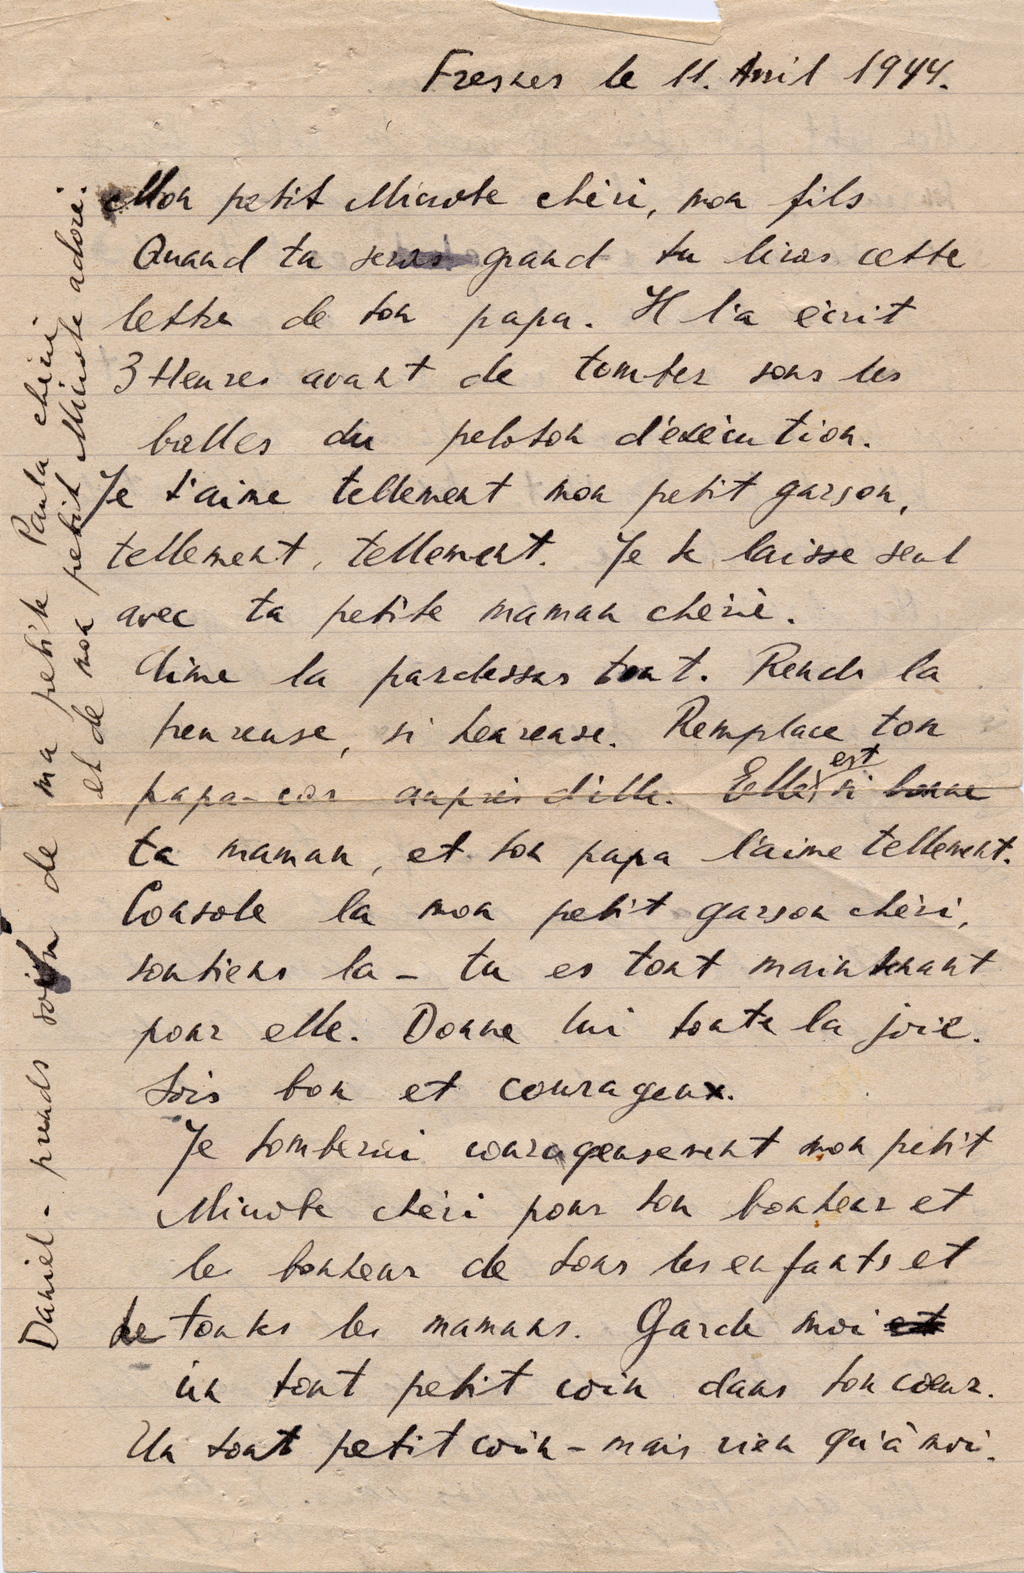 Fresnes le 11. Avril 1944.
Mon petit Microbe chéri, mon fils
Quand tu seras grand tu liras cette
lettre de ton papa. Il l'a écrit
3 Heures avant de tomber sous les
balles du peloton d'éxécution.
Je t'aime tellement mon petit garson,
tellement, tellement. Je te laisse seul
avec ta petite maman chérie.
Aime la pardessus tout. Rends la
heureuse, si heureuse. Remplace ton
papa-cos auprès d'elle. Elle est si bonne
ta maman, et ton papa l'aime tellement.
Console la mon petit garson chéri,
soutiens la - tu es tout maintenant
pour elle. Donne lui toute la joie.
Sois bon et courageux.
Je tomberai courageusement mon petit
Microbe chéri pour ton bonheur et
le bonheur de tous les enfants et
de toutes les mamans. Garde moi et
un tout petit coin dans ton coeur.
Un tout petit coin - mais rien qu'à moi.
Daniel - prends soin de ma petite Paula chérie
et de mon petit Microbe adoré.